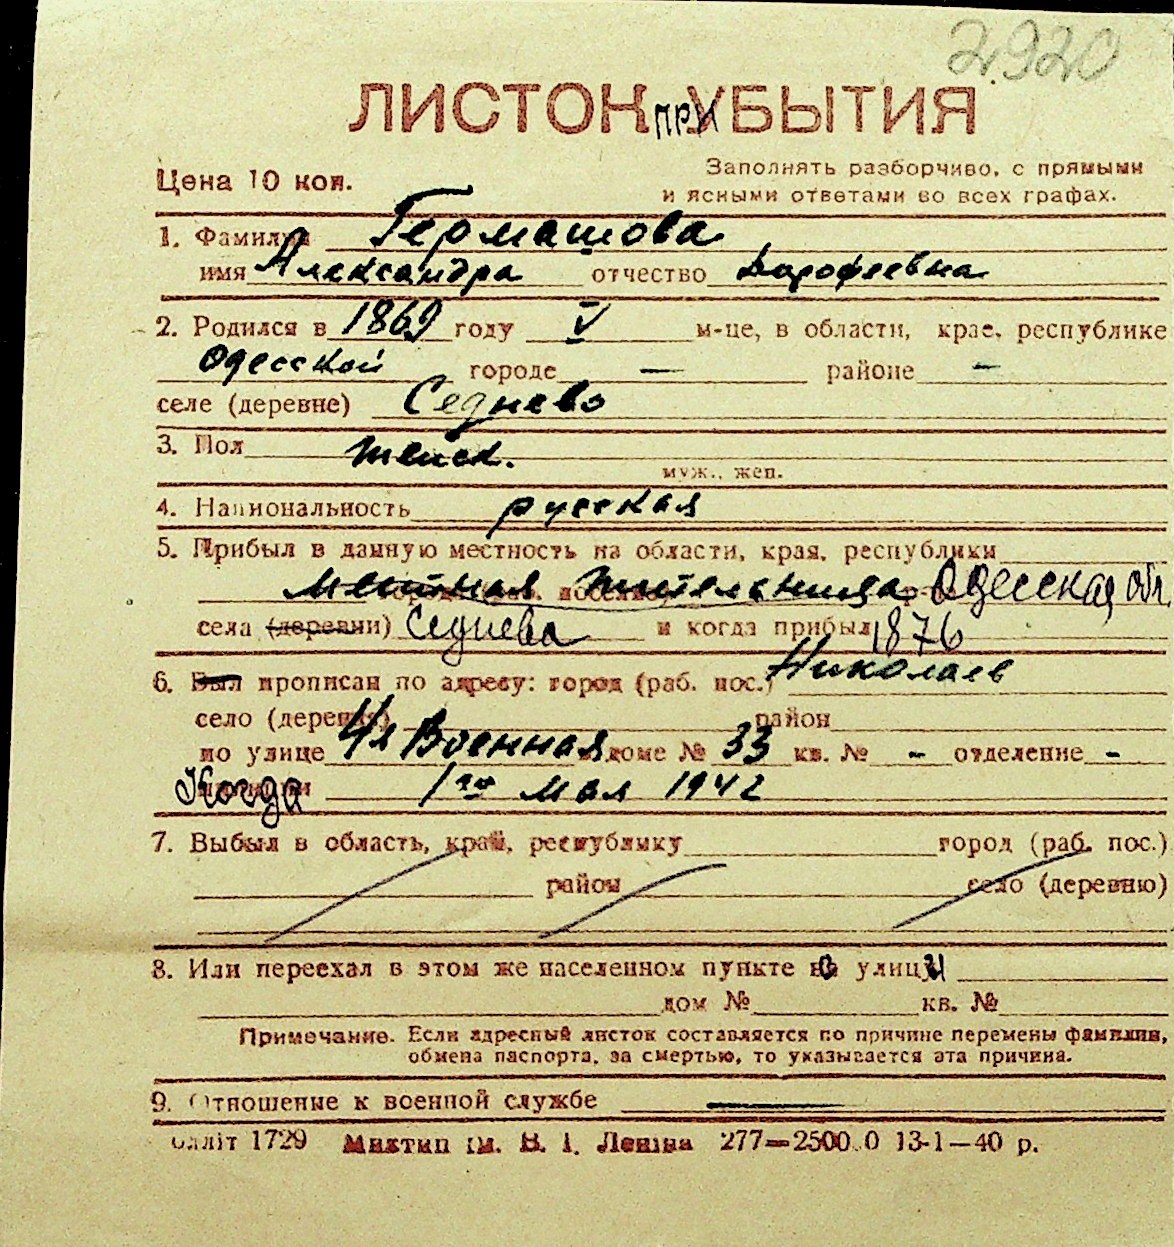 2920
ЛИСТОК ПРИБЫТИЯ
Цена 10 коп.
Заполнять разборчиво, с прямыми
и ясными ответами во всех графах.
1. Фамилия Гермашова
имя Александра отчество Дорофеевна
2. Родился в 1869 году V м-це, в области, крае, республике
Одесской городе — районе —
селе (деревне) Седнево
3. Пол женск.
муж., жен.
4. Национальность русская
5. Прибыл в данную местность из области, края, республики
местная жительница Одесская обл.
села (деревни) Седнева и когда прибыл 1876
6. Был прописан по адресу: город (раб. пос.) Николаев
село (деревня) район
по улице 4я Военная доме № 33 кв. № - отделение -
Когда 1го мая 1942
7. Выбыл в область, край, республику город (раб. пос.)
район село (деревню)
8. Или переехал в этом же населенном пункте с улицы
дом № кв. №
Примечание. Если адресный листок составляется по причине перемены фамилии,
обмена паспорта, за смертью, то указывается эта причина.
9. Отношение к военной службе —
1729 Миктип ім. В. І. Леніна 277—2500 0 13-1—40 р.